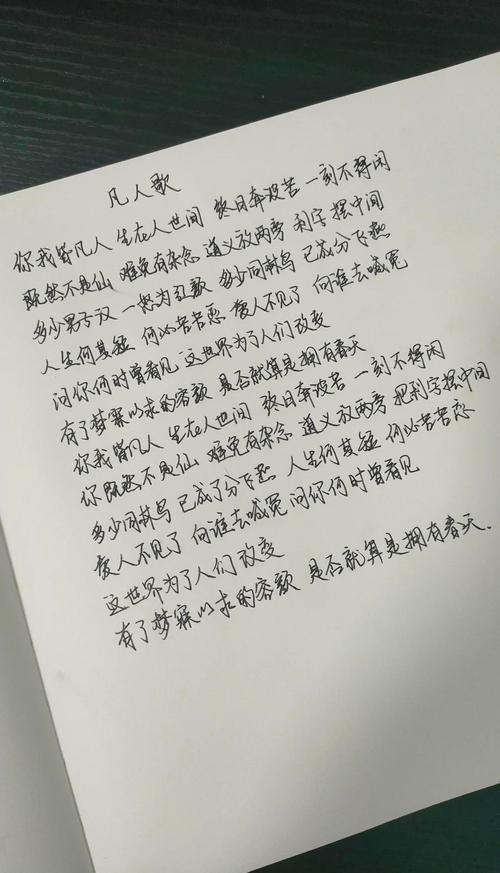 凡人歌
你我皆凡人 生在人世间 终日奔波苦 一刻不得闲
既然不是仙 难免有杂念 道义放两旁 利字摆中间
多少男子汉 一怒为红颜 多少同林鸟 已成分飞燕
人生何其短 何必苦苦恋 爱人不见了 向谁去喊冤
问你何时曾看见 这世界为了人们改变
有了梦寐以求的容颜 是否就算是拥有春天
你我皆凡人 生在人世间 终日奔波苦 一刻不得闲
你既然不是仙 难免有杂念 道义放两旁 把利字摆中间
多少同林鸟 已成了分飞燕 人生何其短 何必苦苦恋
爱人不见了 向谁去喊冤 问你何时曾看见
这世界为了人们改变
有了梦寐以求的容颜 是否就算是拥有春天.